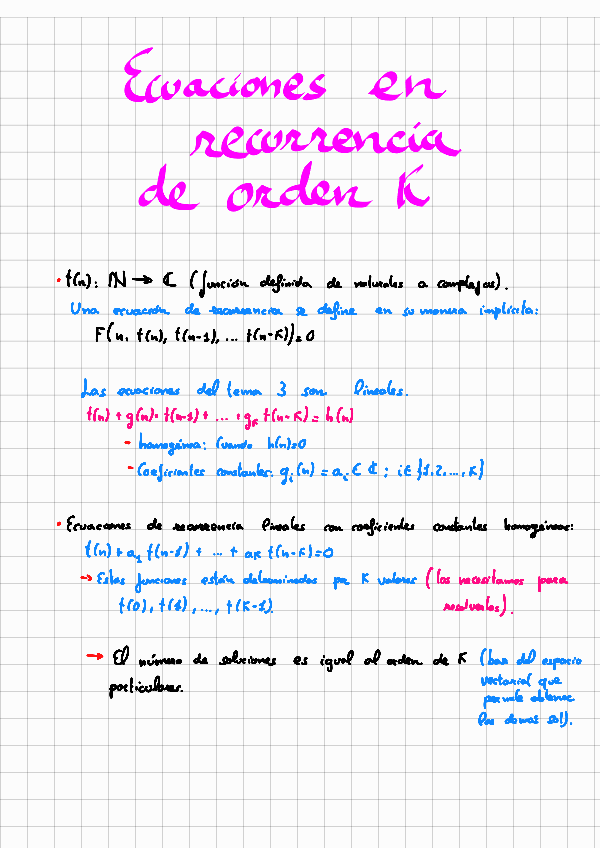 Ecuaciones en
recurrencia
de orden K
• t(n): ℕ → ℂ (función definida de naturales a complejos).
Una ecuación de recurrencia se define en su manera implícita:
F(n, t(n), t(n-1), ... t(n-K))=0
Las ecuaciones del tema 3 son lineales.
t(n) + g(n)· t(n-1) + ... + gₖ t(n-K) = h(n)
- homogénea: Cuando h(n)=0
- Coeficientes constantes: gᵢ(n) = aᵢ ∈ ℂ ; i∈{1,2,...,K}
• Ecuaciones de recurrencia lineales con coeficientes constantes homogéneas:
t(n) + a₁ t(n-1) + ... + aK t(n-K)=0
→ Estas funciones están determinadas por K valores (los necesitamos para
t(0), t(1), ..., t(K-1). resolverlos).
→ El número de soluciones es igual al orden de K (base del espacio
particulares. vectorial que
permite obtener
las demás sol).